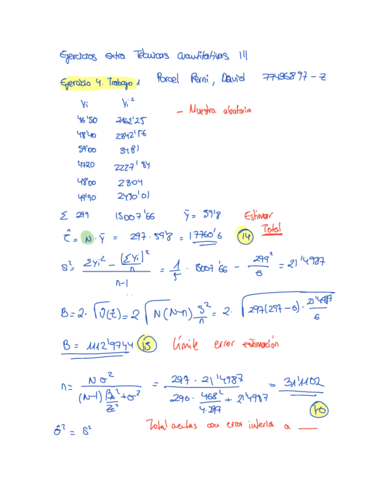 Ejercicios extra Técnicas Cuantitativas III
Ejercicio 4. Trabajo 1 Porcel Peni, David 77496897-Z
Yi Yi²
46'50 2162'25
48'40 2342'56
59'00 3481
47'20 2227'84
48'00 2304
49'90 2490'01
- Muestra aleatoria
Σ 299 15007'66 ȳ = 59'8 Estimar Total
τ̂ = N·ȳ = 297·59'8 = 17760'6 (14)
S² = (ΣYi² - [ΣYi]²/n)/(n-1) = 1/5 · 15007'66 - 299²/6 = 21'4987
B = 2·√V̂(τ̂) = 2√(N(N-n) S²/n) = 2·√(297(297-6)· 21'4987/6)
B = 1112'9744 (15) límite error estimación
n = Nσ²/((N-1) B²/z² + σ²) = 297·21'4987/(296· 468²/4·297 + 21'4987) = 31'1102 (70)
σ̂² = S² Total con error inferior a ___